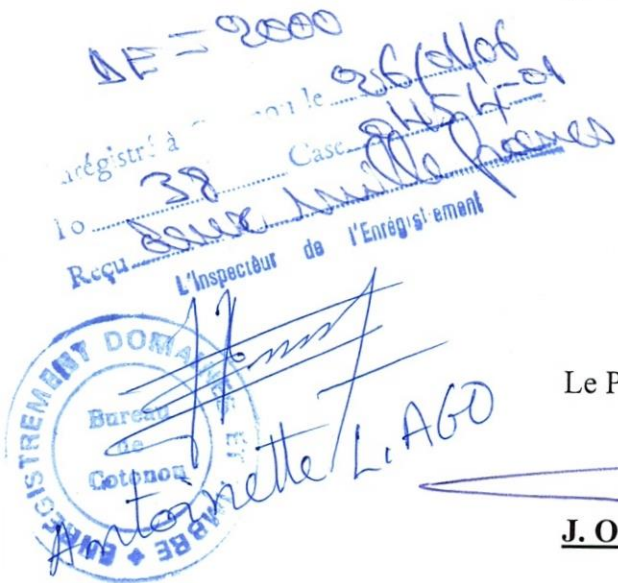 DE = 2000
nrégistré à le 26/01/06
Fo 38 Case
Reçu deux mille francs
L'Inspecteur de l'Enrégistrement
ENREGISTREMENT DOMAINES ET TIMBRE
Bureau
de
Cotonou
Antoinette L. AGO
Le P
J. O